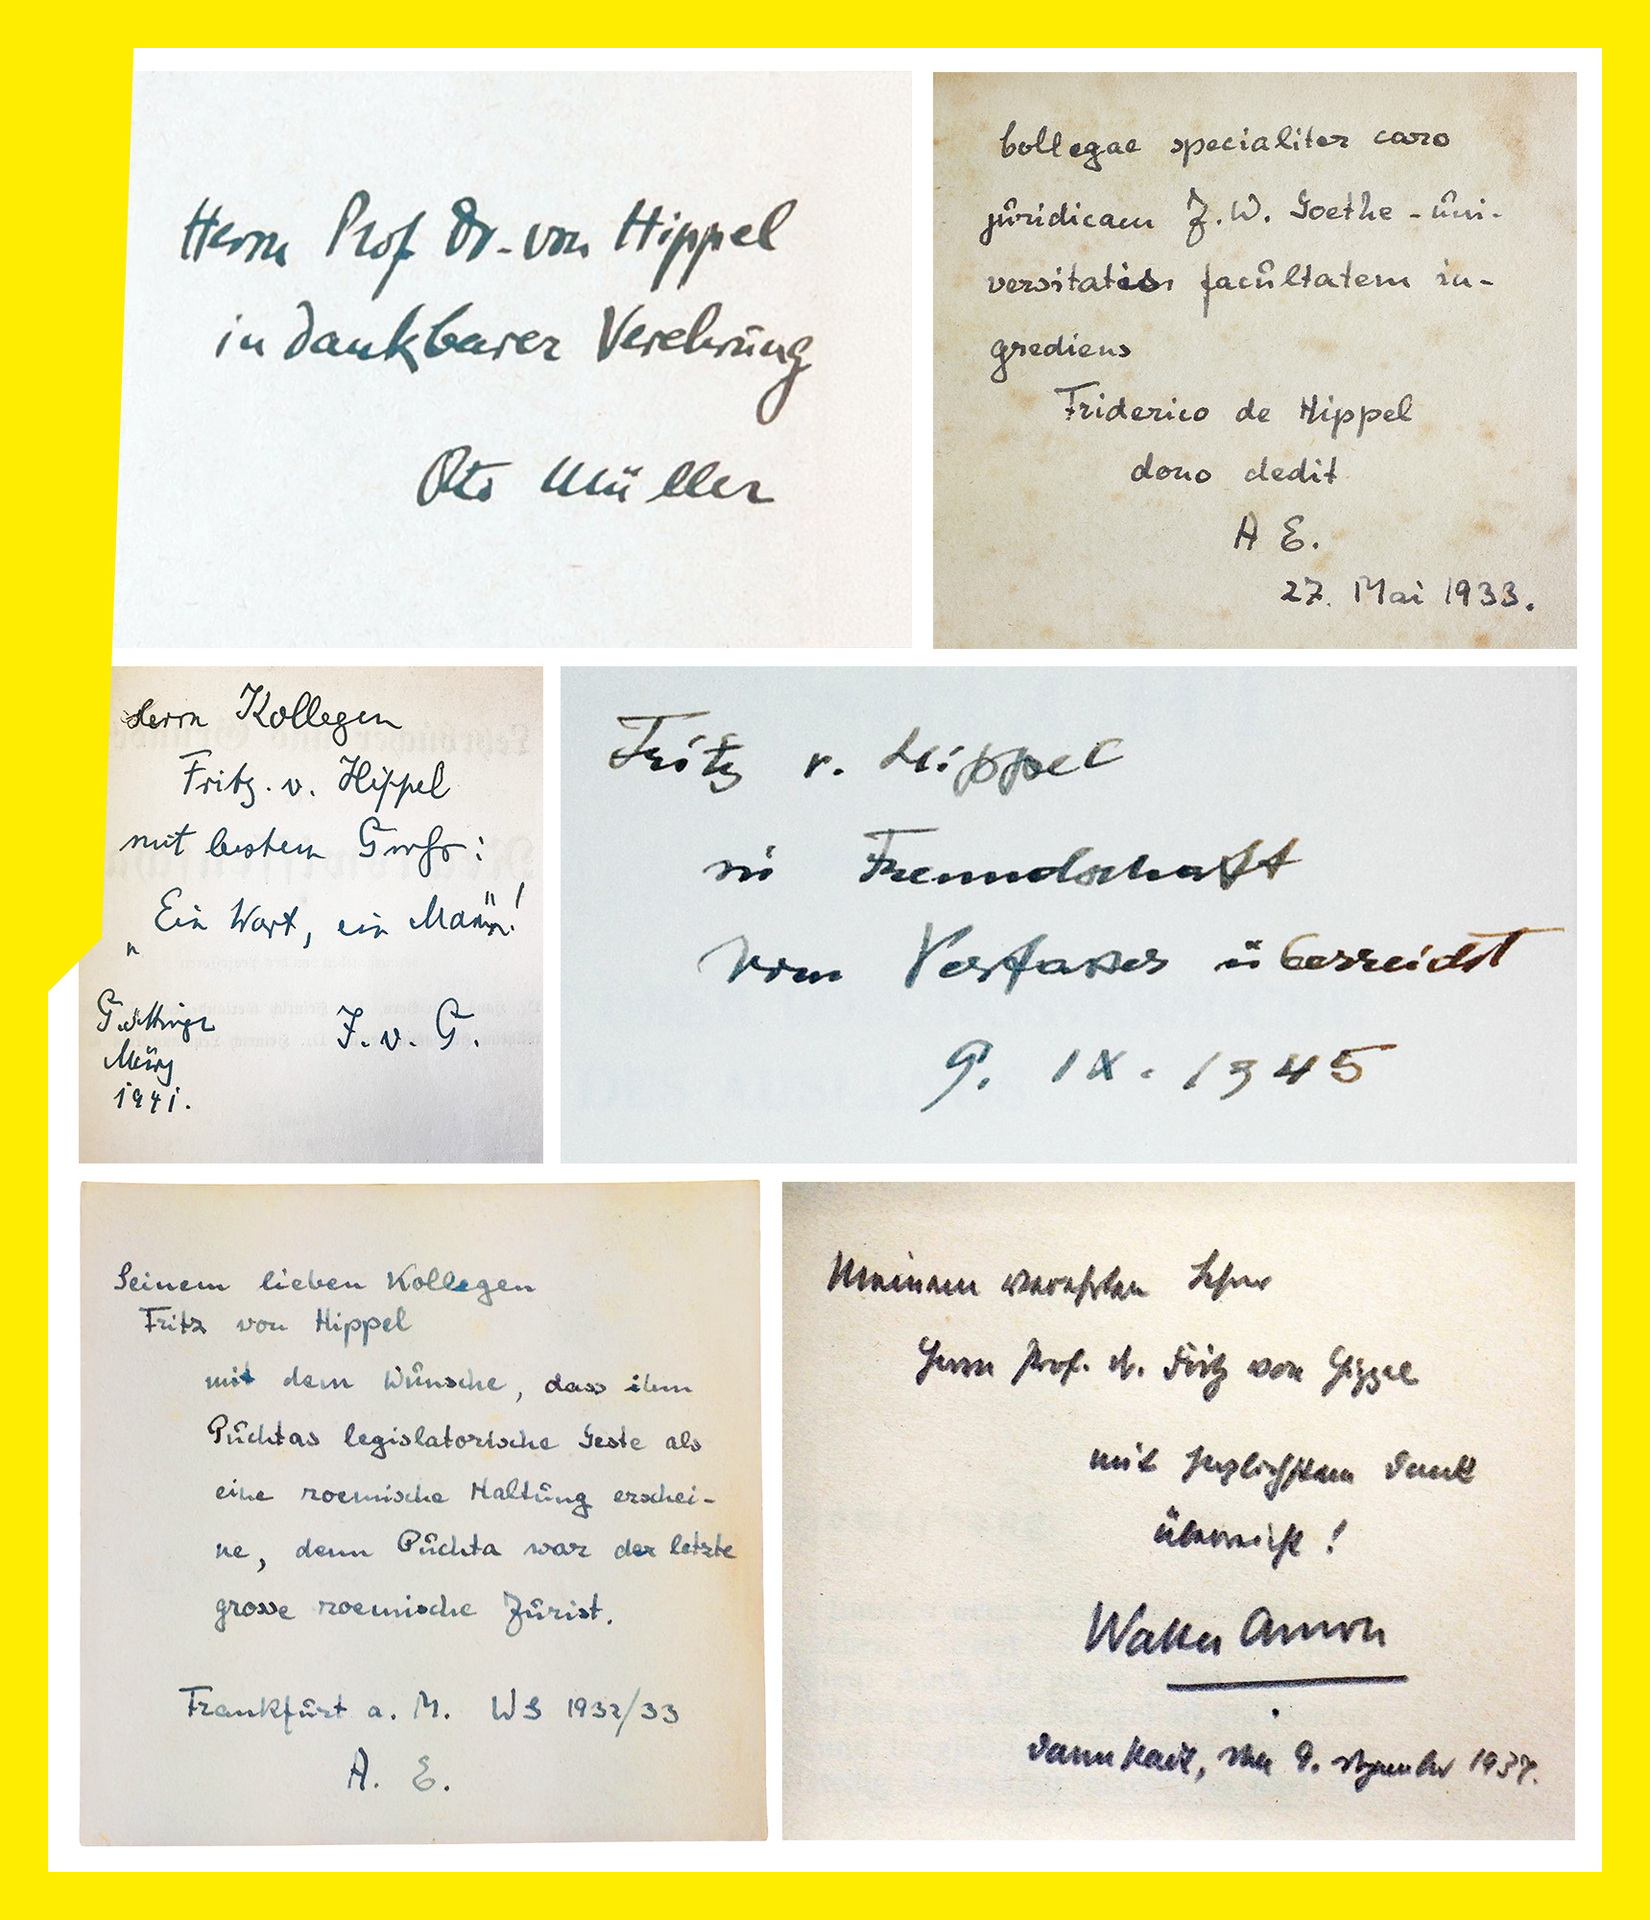 Herrn Prof Dr. von Hippel
in dankbarer Verehrung
Otto Müller
Collegae specialiter caro
juridicam J. W. Goethe-uni-
versitatis facultatem in-
grediens
Friderico de Hippel
dono dedit
A E.
27. Mai 1933.
Herrn Kollegen
Fritz v. Hippel
mit bestem Gruß:
„Ein Wort, ein Mann"!
Göttingen
März
1941.
J. v. G.
Fritz v. Hippel
in Freundschaft
vom Verfasser überreicht
9. IX. 1945
Seinem lieben Kollegen
Fritz von Hippel
mit dem Wunsche, dass ihm
Puchtas legislatorische Geste als
eine roemische Haltung erschei-
ne, denn Puchta war der letzte
grosse roemische Jurist.
Frankfurt a. M. WS 1932/33
A. E.
Meinem verehrten Lehrer
Herrn Prof. Dr. Fritz von Hippel
mit herzlichstem Dank
überreicht!
Walter
Darmstadt, den 9. 1937.